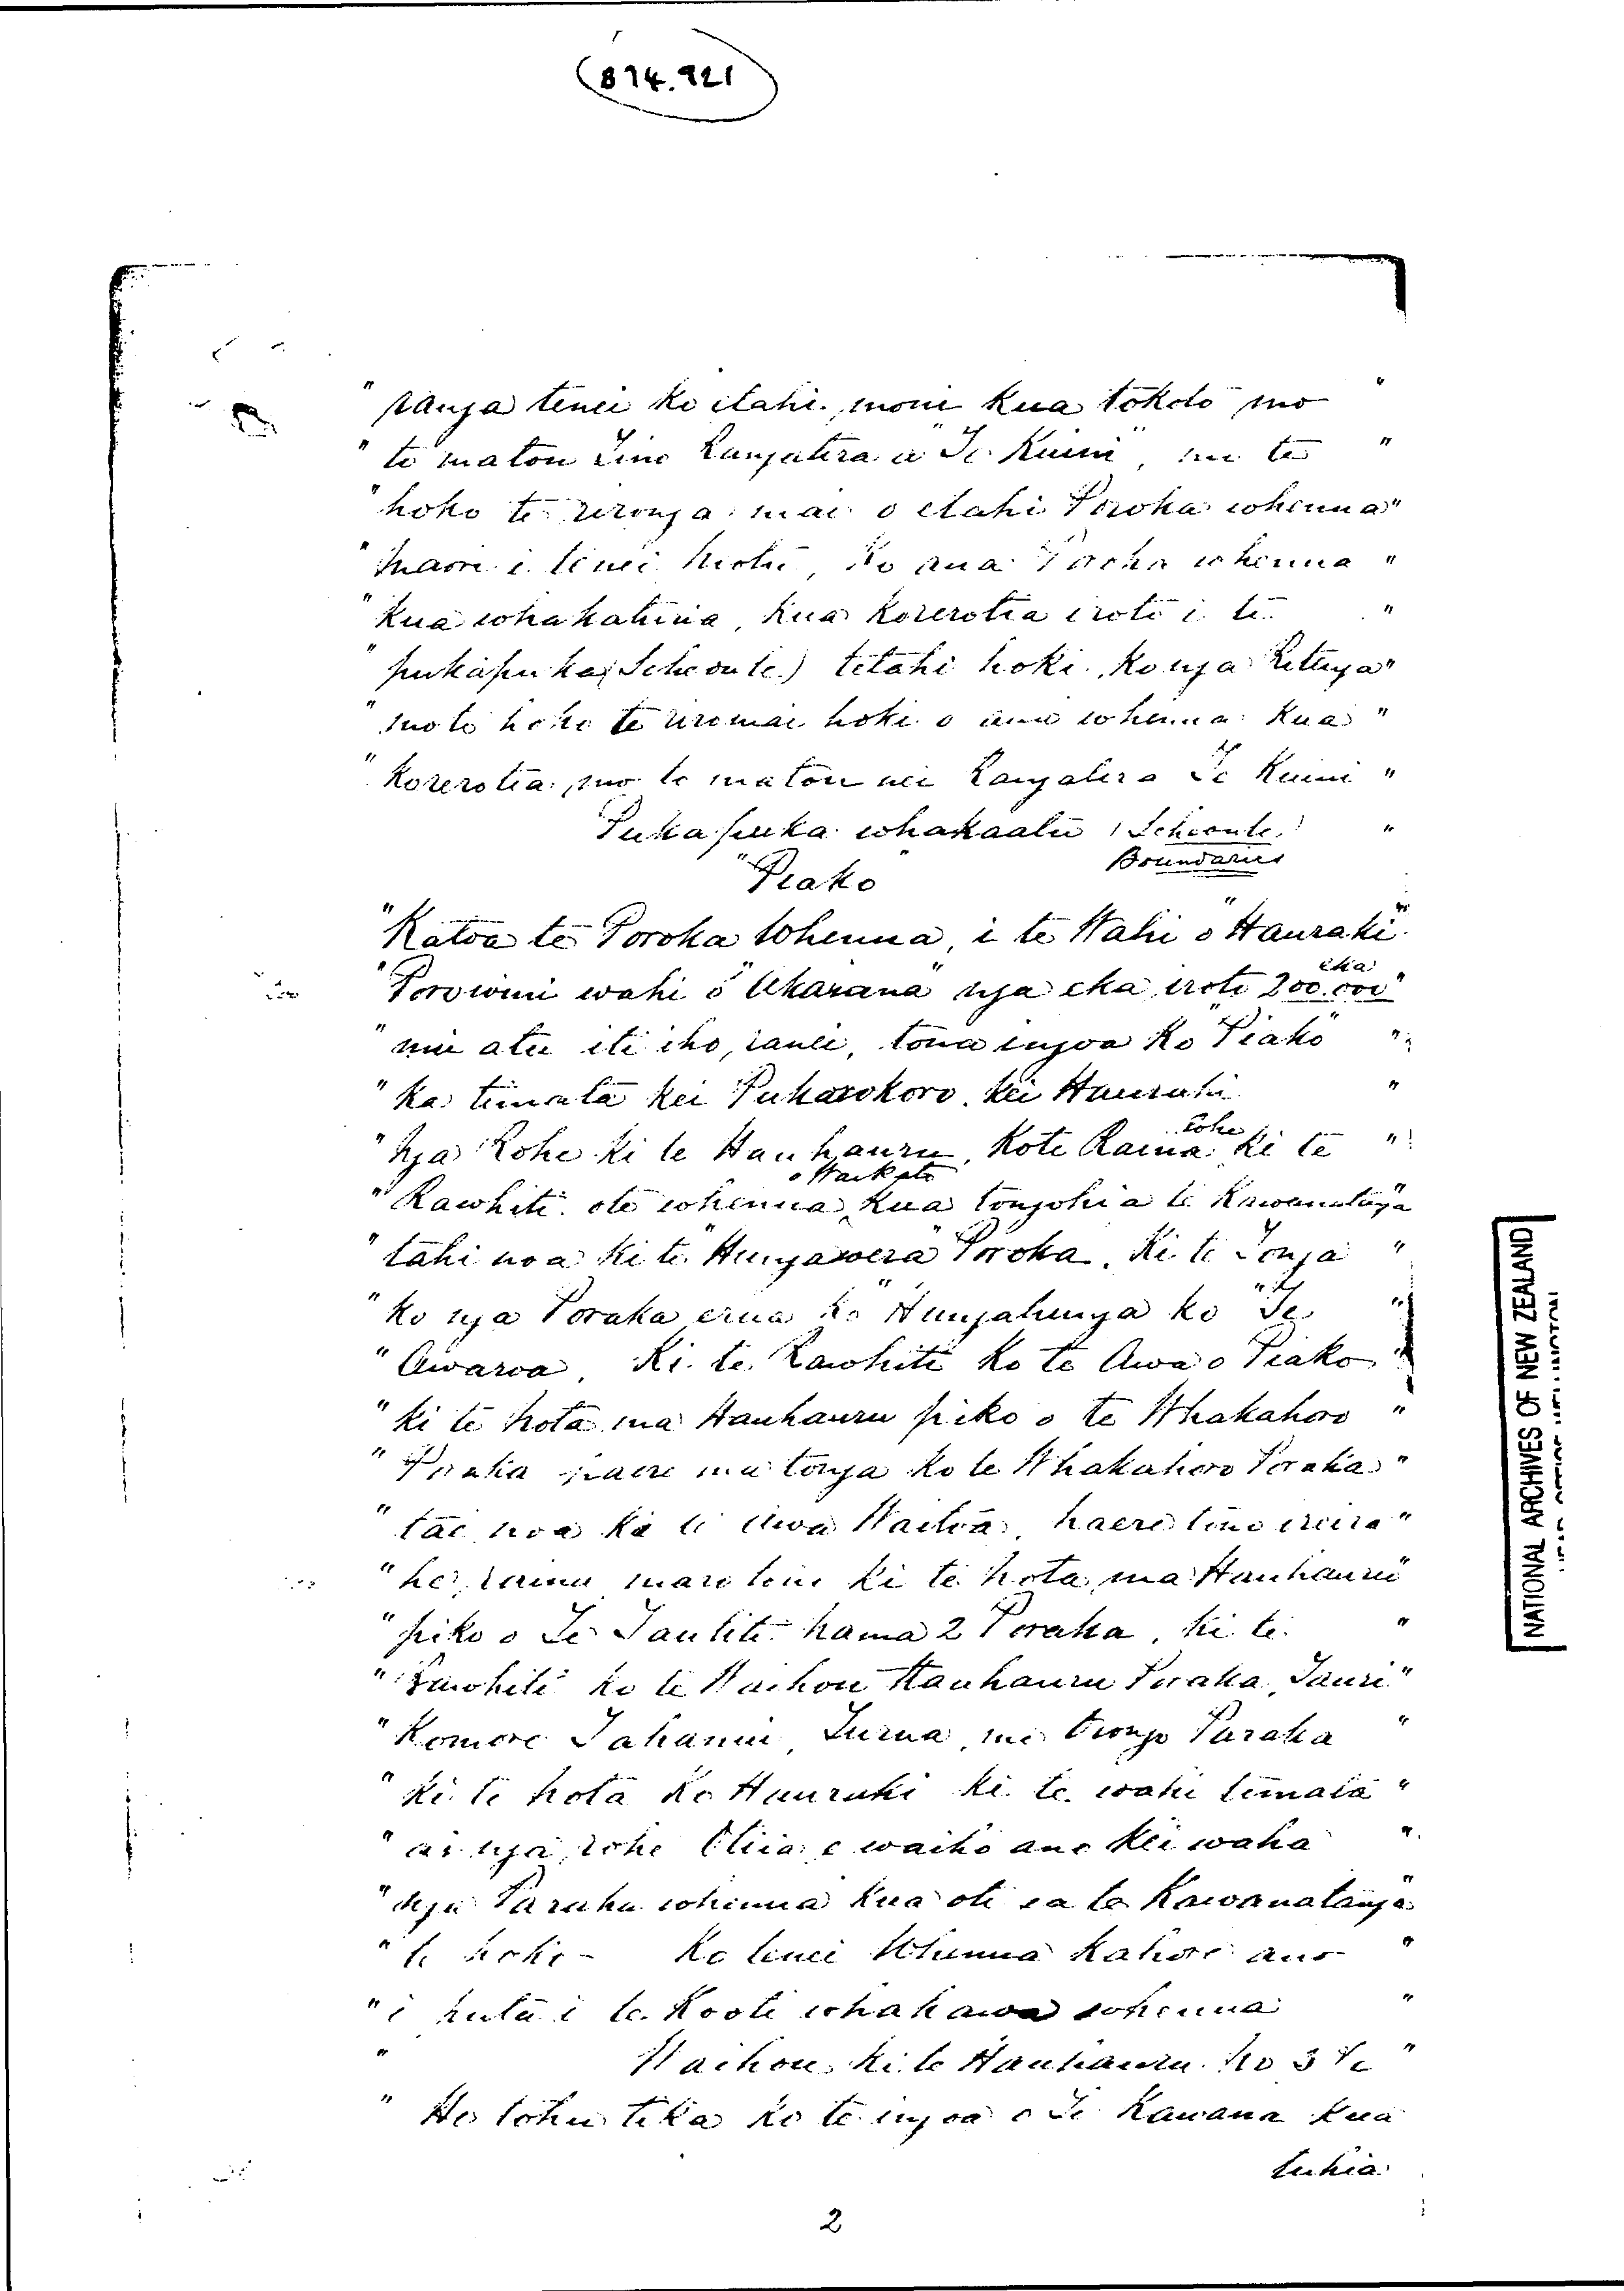 (874.921)
" tanga tenei ko etahi moni kua tokoto mo "
" te matou Rangatira a "Te Kuini", mo te "
" hoko te mai o etahi Poroka whenua "
" Maori i tenei Motu, ko ana Poroka whenua "
" kua whakahuina, kua korerotia iroto i te "
" pukapuka (Scheoule) tetahi hoki, ko nga Ritenga "
" mo te hoko te mai hoki o ana whenua kua "
" korerotia, mo te matou nei Rangatira Te Kuini "
Pukapuka whakaatu (Scheoule) "
Boundaries
"Piako
" Katoa te Poroka Whenua, i te Wahi o "Hauraki" "
" Porowini wahi o "Akarana" nga eka iroto 200.000 eka "
" nui atu iti iho, ranei, tona ingoa ko Piako "
" Ka timata kei Pukorokoro, kei Hauraki "
" Nga Rohe ki te Hauhauru, Kote Raina rohe ki te "
o Waikato
" Rawhiti o te whenua kua tongohia te Kawanatanga
" tahi noa ki te "Hungawera" Poroka. Ki te Tonga "
" ko nga Poraka erua ko "Hungahunga" ko "Te "
" Awaroa, Ki te Rawhiti ko te Awa o Piako "
" ki te Nota ma Hauhauru piko o te Whakahoro "
" Poraka haere ma tonga ko te Whakahoro Poraka "
" tae noa ki te Awa Waitoa, haere tono "
" he raina maro tonu ki te Nota ma Hauhauru "
" piko o Te Tautiti nama 2 Poraka, ki te "
" Rawhiti ko te Waihou Hauhauru Poraka, "
" Tahanui, Turua, me Orongo Paraka "
" Ki te Nota ko Hauraki ki te wahi timata "
" ai nga rohe Otiia e waiho ana kei waho "
" Nga Paraka whenua kua oti ia te Kawanatanga
" te hoko - Ko tenei Whenua kahore ano "
" i huta i te Kooti whakawa whenua "
" Waihou ki te Hauhauru No 3 Te "
" He tohu tika ko te ingoa o Te Kawana kua
tuhia
2
NATIONAL ARCHIVES OF NEW ZEALAND